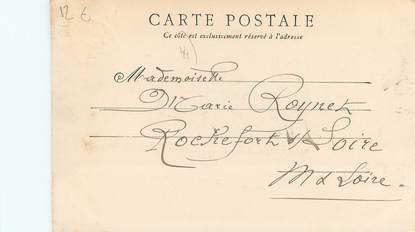 12 €
CARTE POSTALE
Ce côté est exclusivement réservé à l'adresse
Mademoiselle
Marie Roynet
Rochefort s/ Loire
M & Loire.